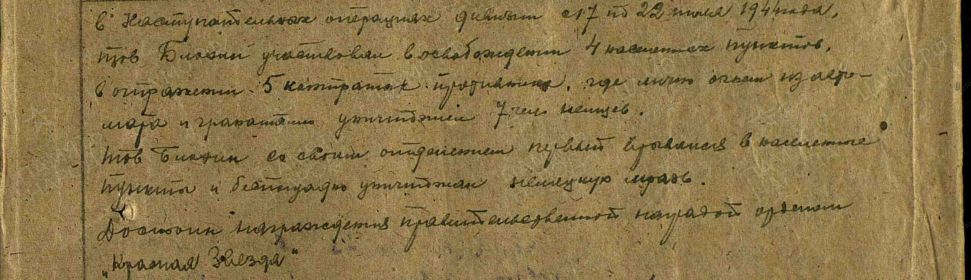 В наступательных операциях дивизии с 17 по 22 июля 1944 года,
тов участвовал в освобождении 4 населенных пунктов,
в отражении 5 контратак противника, где лично огнем из авто-
мата и гранатами уничтожил 7 чел немцев.
тов со своим отделением первый врывался в населенные
пункты и беспощадно уничтожал немецкую мразь.
Достоин награждения правительственной наградой орденом
„Красная Звезда"